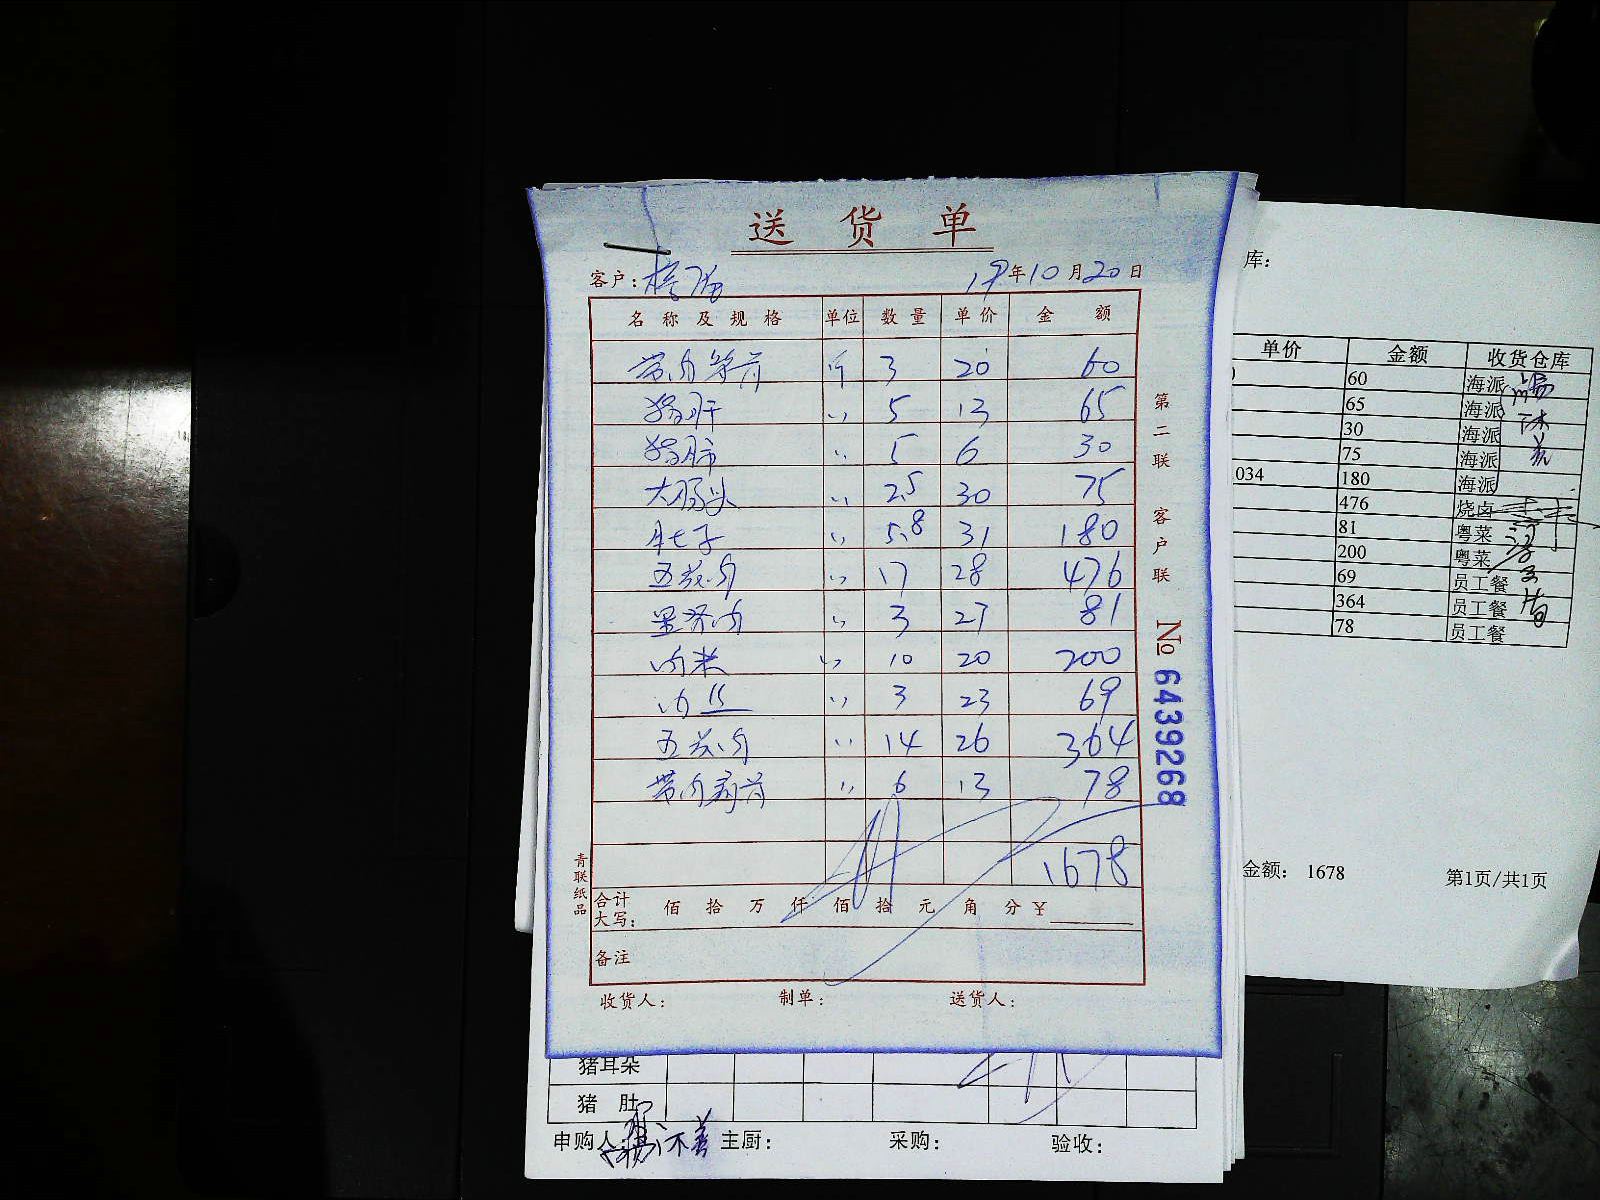 送货单
客户: 19年10月20日
名称及规格 单位 数量 单价 金额
带肉 斤 3 20 60
猪肝 〃 5 13 65
猪肺 〃 5 6 30
大肠头 〃 2.5 30 75
肚子 〃 5.8 31 180
五花肉 〃 17 28 476
〃 3 27 81
肉末 〃 10 20 200
肉丝 〃 3 23 69
五花肉 〃 14 26 364
带肉 〃 6 13 78
1678
合计大写: 佰 拾 万 仟 佰 拾 元 角 分 ¥
备注
收货人: 制单: 送货人:
第二联 客户联
No 6439268
青联纸品
库:
单价 金额 收货仓库
60 海派
65 海派
30 海派
75 海派
034 180 海派
476 烧卤
81 粤菜
200 粤菜
69 员工餐
364 员工餐
78 员工餐
金额: 1678 第1页/共1页
猪耳朵
猪肚
申购人: 主厨: 采购: 验收: